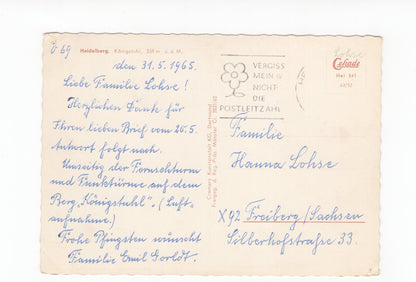 Ü 69
Heidelberg. Königstuhl, 568 m ü. d. M.
den 31.5.1965.
Liebe Familie Lohse!
Herzlichen Dank für
Ihren lieben Brief vom 20.5.
Antwort folgt nach.
Umseitig der Fernsehturm
und Funktürme auf dem
Berg „Königstuhl". (Luft-
aufnahme.)
Frohe Pfingsten wünscht
Familie Emil Gorldt.
VERGISS
MEIN
NICHT
DIE
POSTLEITZAHL
Lohse
Cekade
Hei 341
Familie
Hanna Lohse
X92 Freiberg/Sachsen
Silberhofstraße 33.